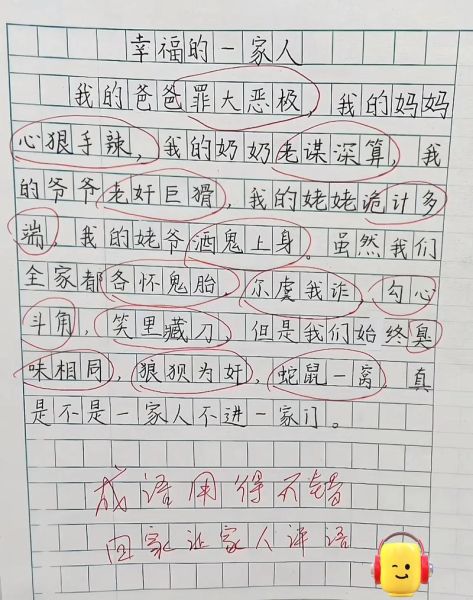 幸福的一家人
我的爸爸罪大恶极，我的妈妈
心狠手辣，我的奶奶老谋深算，我
的爷爷老奸巨猾，我的姥姥诡计多
端，我的姥爷酒鬼上身。虽然我们
全家都各怀鬼胎，尔虞我诈，勾心
斗角，笑里藏刀，但是我们始终臭
味相同，狼狈为奸，蛇鼠一窝，真
是不是一家人不进一家门。
成语用得不错
回家让家人评语